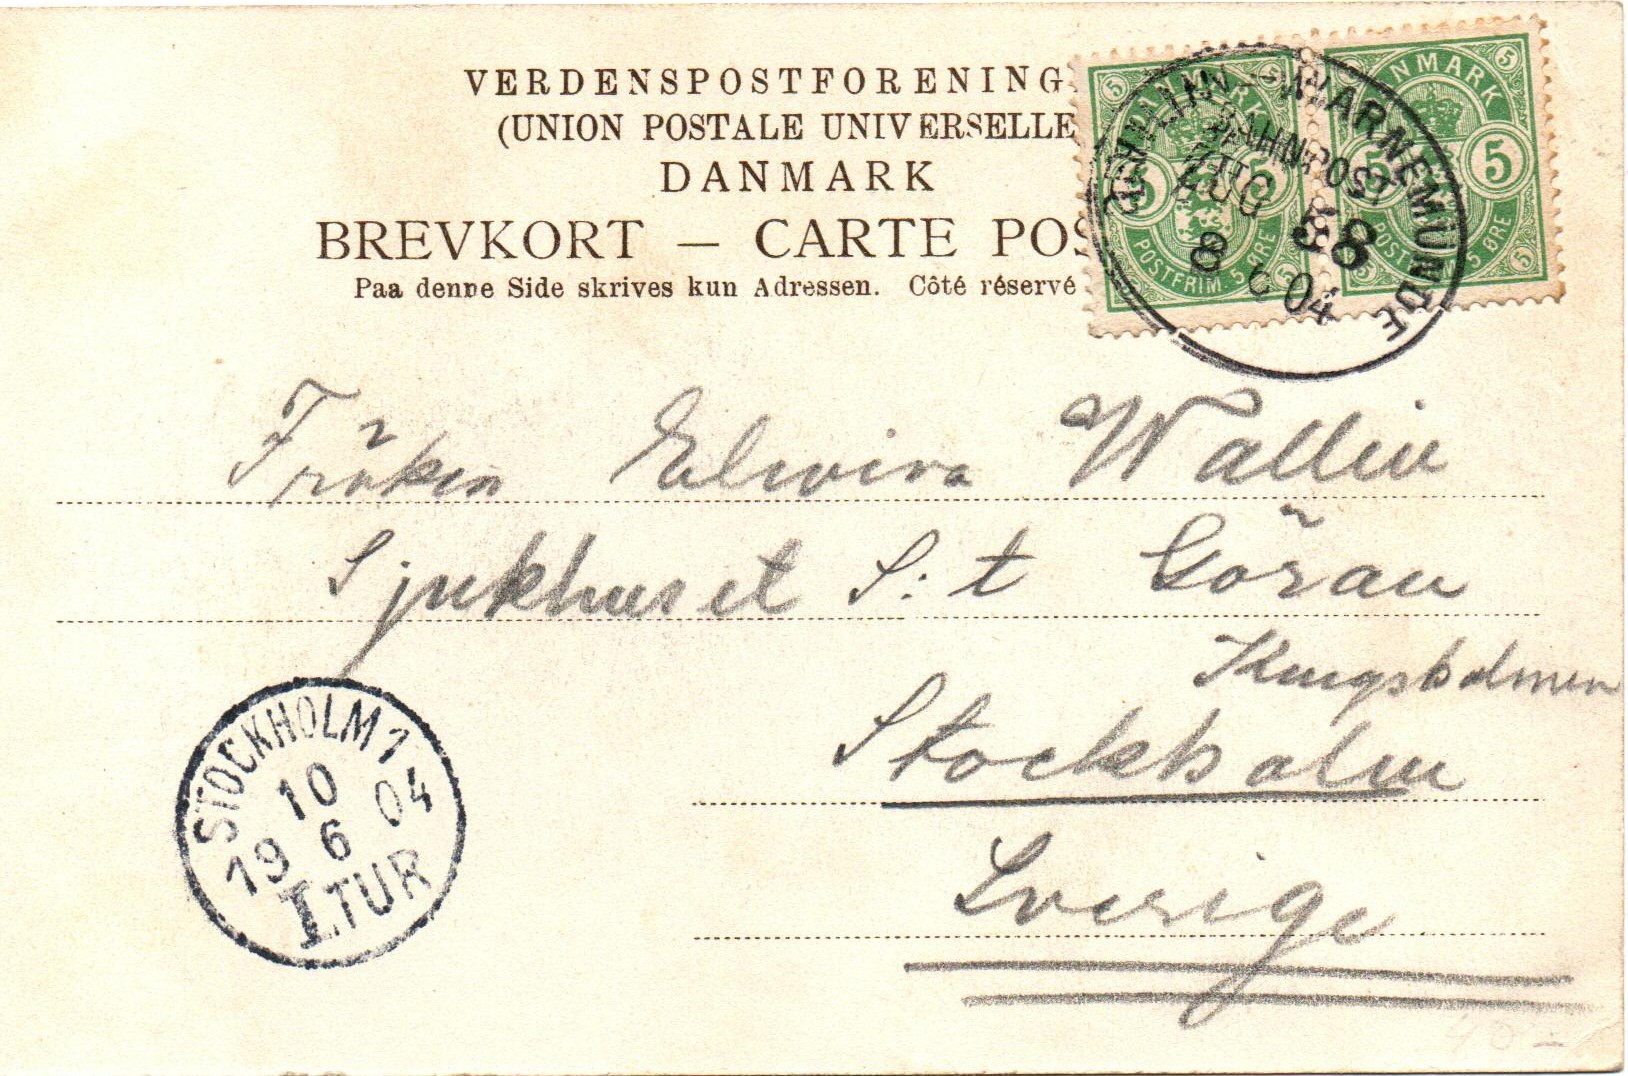 VERDENSPOSTFORENING
(UNION POSTALE UNIVERSELLE
DANMARK
BREVKORT — CARTE POS
Paa denne Side skrives kun Adressen. Côté réservé
DANMARK
5 5
POSTFRIM. 5 ØRE
NMARK
5 5
POSTFRIM. 5 ØRE
WARNEMÜNDE
BAHNPOST
ZUG 58
8 6 04
Fröken Elwira Wallin
Sjukhuset S:t Göran
Kungsholmen
Stockholm
Sverige
STOCKHOLM 1
10
19 6 04
I.TUR